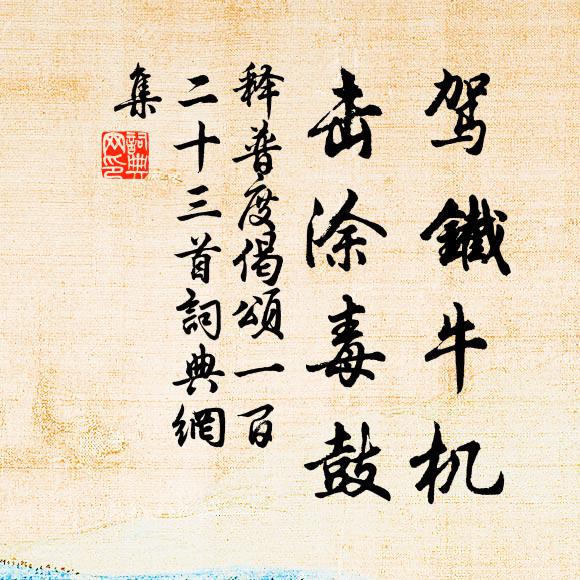 驾鐵牛机
击涂毒鼓
释普度偈頌一百
二十三首詞典網
集
詞典网印